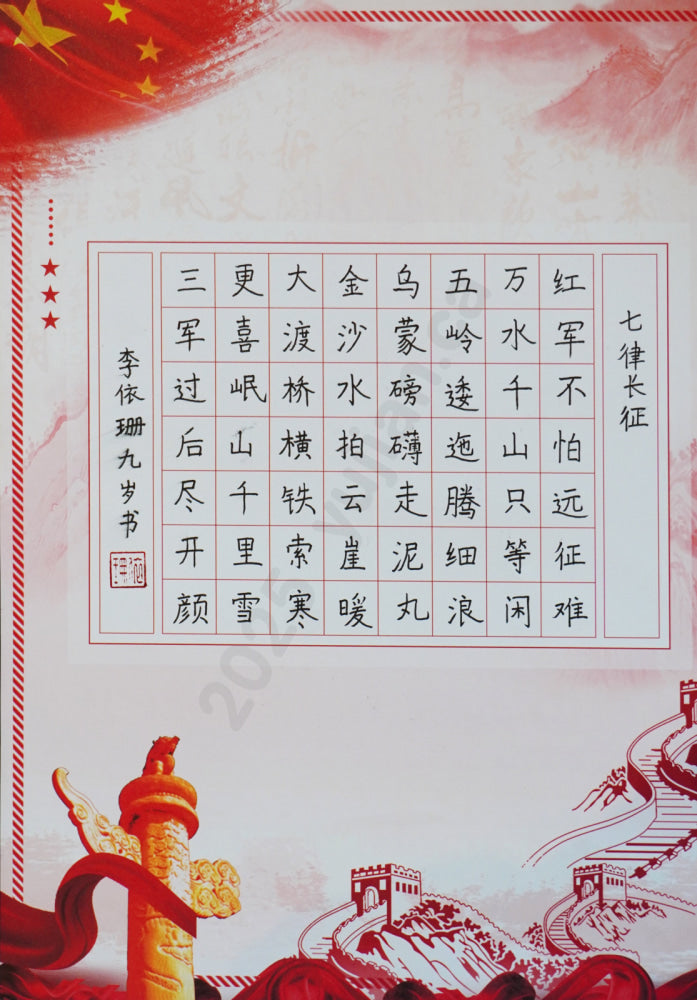 七律长征
红军不怕远征难
万水千山只等闲
五岭逶迤腾细浪
乌蒙磅礴走泥丸
金沙水拍云崖暖
大渡桥横铁索寒
更喜岷山千里雪
三军过后尽开颜
李依珊九岁书
2025 yujian.ca